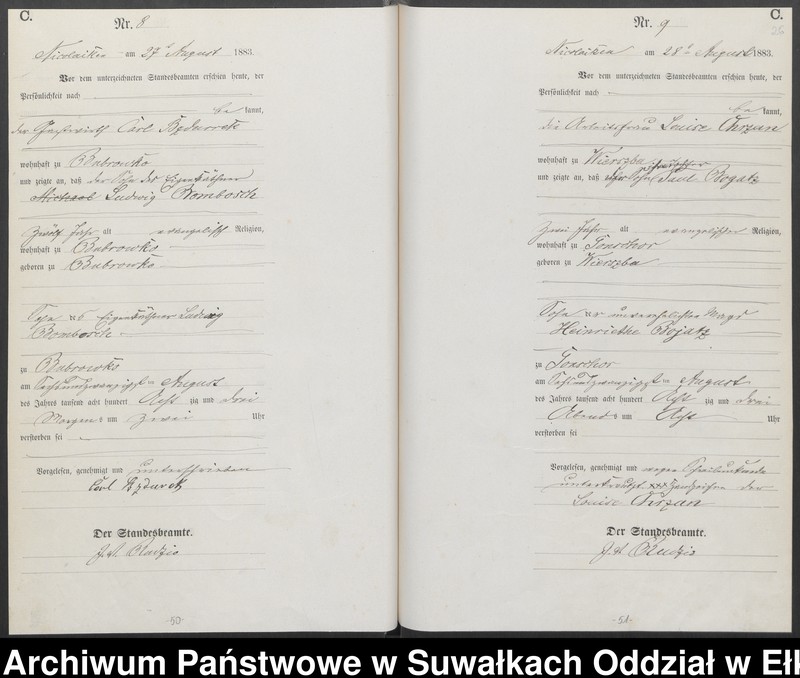 C.
Nr. 8
Nicolaiken am 27ᵗ August 1883.
Vor dem unterzeichneten Standesbeamten erschien heute, der
Persönlichkeit nach
be kannt,
der Gastwirth Carl
wohnhaft zu Bubrowko
und zeigte an, daß der Sohn des Eigenkäthner
Michael Ludwig Bombosch
Zwölf Jahr alt evangelisch Religion,
wohnhaft zu Bubrowko
geboren zu Bubrowko
Sohn des Eigenkäthner Ludwig
Bombosch
zu Bubrowko
am Sechsundzwanzigst en August
des Jahres tausend acht hundert Acht zig und drei
Morgens um Zwei Uhr
verstorben sei
Vorgelesen, genehmigt und unterschrieben
Carl
Der Standesbeamte.
-50-
C.
Nr. 9
26
Nicolaiken am 28ᵗ August 1883.
Vor dem unterzeichneten Standesbeamten erschien heute, der
Persönlichkeit nach
be kannt,
die Arbeitsfrau Louise Chrzan
wohnhaft zu Wierszba
und zeigte an, daß ihr Sohn Paul Bogatz
Zwei Jahr alt evangelischer Religion,
wohnhaft zu Tonschor
geboren zu Wierszba
Sohn der unverehelichten Magd
Heinriethe Bojatz
zu Tonschor
am Siebenundzwanzigst en August
des Jahres tausend acht hundert Acht zig und drei
Abends um Acht Uhr
verstorben sei
Vorgelesen, genehmigt und wegen Schreibunkunde
unterkreuzt xxx Handzeichen der
Louise Chrzan
Der Standesbeamte.
-51-
Archiwum Państwowe w Suwałkach Oddział w Ełk